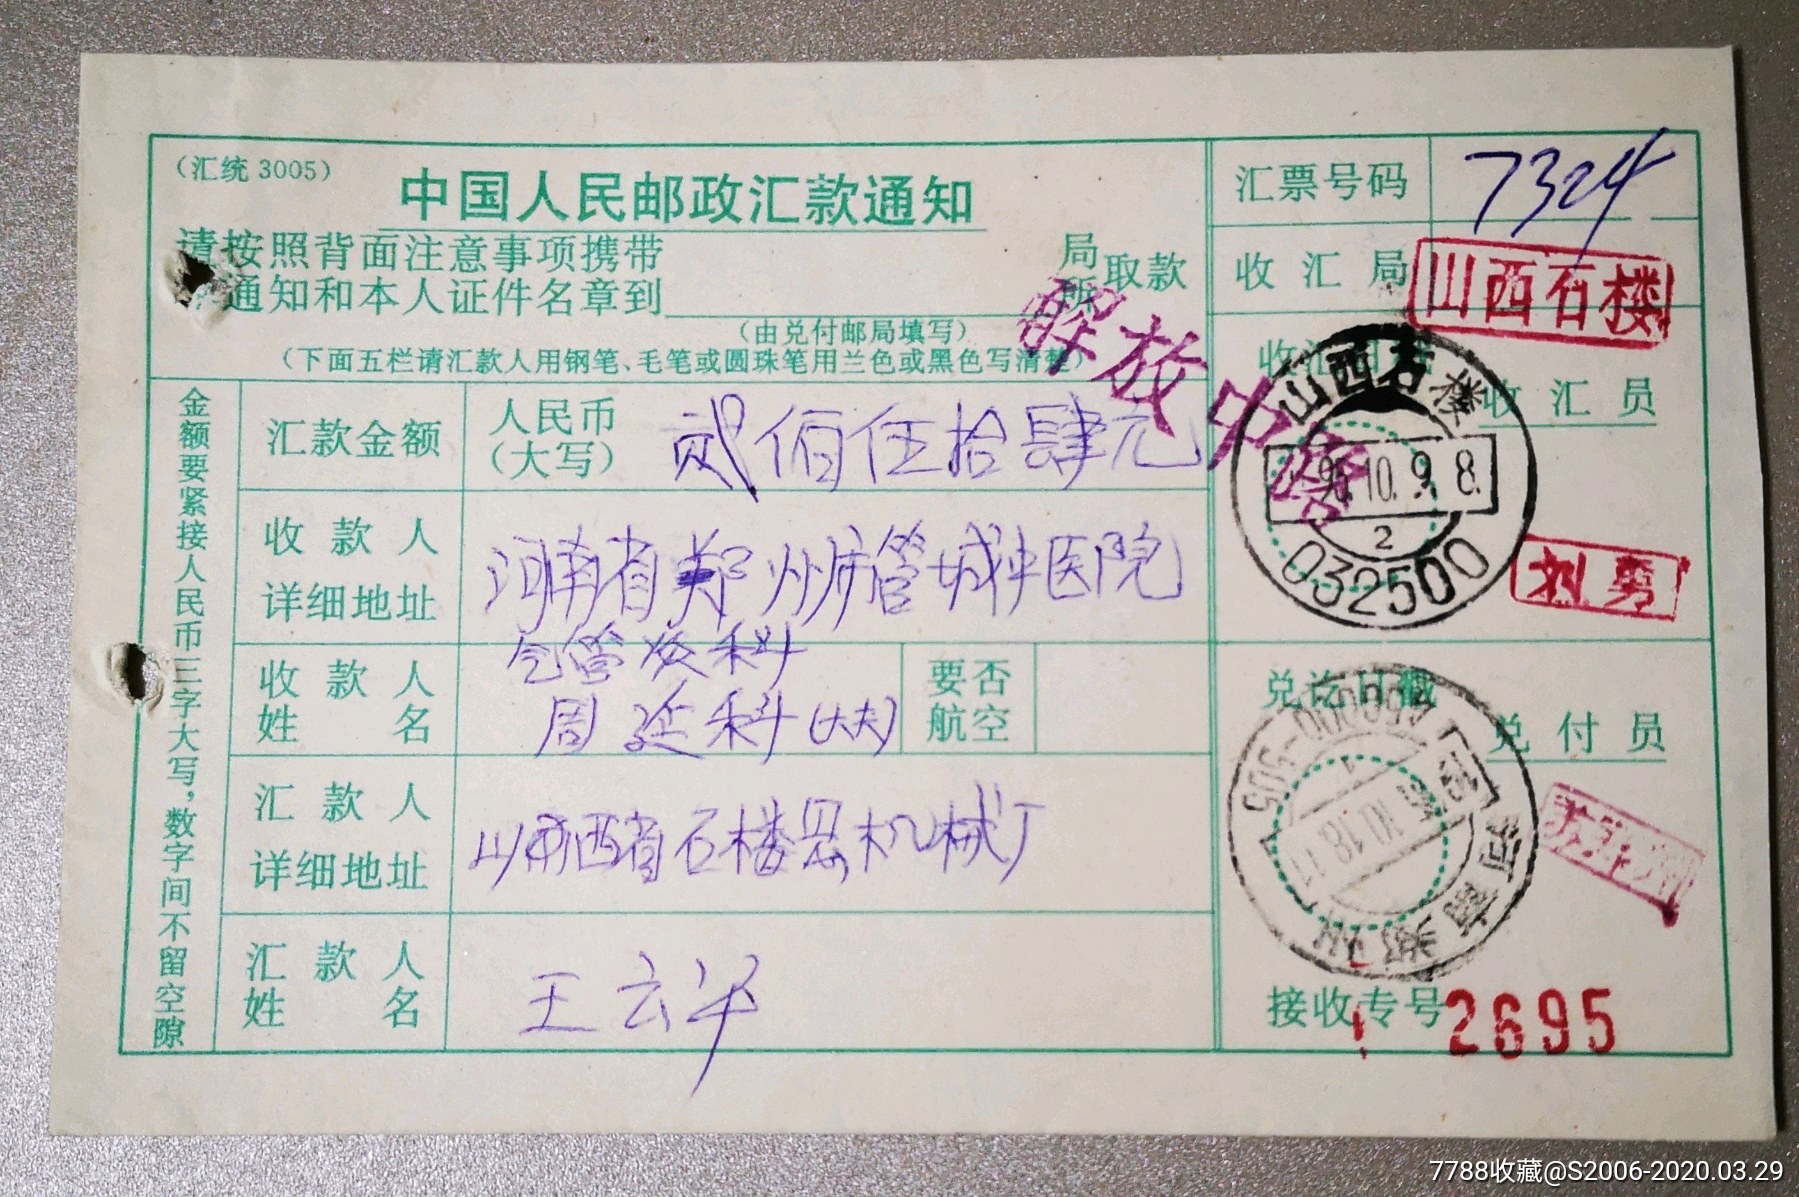 （汇统 3005）
中国人民邮政汇款通知
请按照背面注意事项携带
通知和本人证件名章到
局
所
取款
（由兑付邮局填写）
（下面五栏请汇款人用钢笔、毛笔或圆珠笔用兰色或黑色写清楚）
解放中路
金额要紧接人民币三字大写，数字间不留空隙
汇款金额
人民币
（大写）
贰佰伍拾肆元
收款人
详细地址
河南省郑州市管城中医院
气管炎科
收款人
姓名
周延科（大夫）
要否
航空
汇款人
详细地址
山西省石楼县机械厂
汇款人
姓名
王云华
汇票号码
7324
收汇局
山西石楼
收汇日戳
收汇员
山西石楼
96.10.9.8
2
032500
兑讫日戳
兑付员
河南郑州
450000-505
接收专号
2695
7788收藏@S2006-2020.03.29